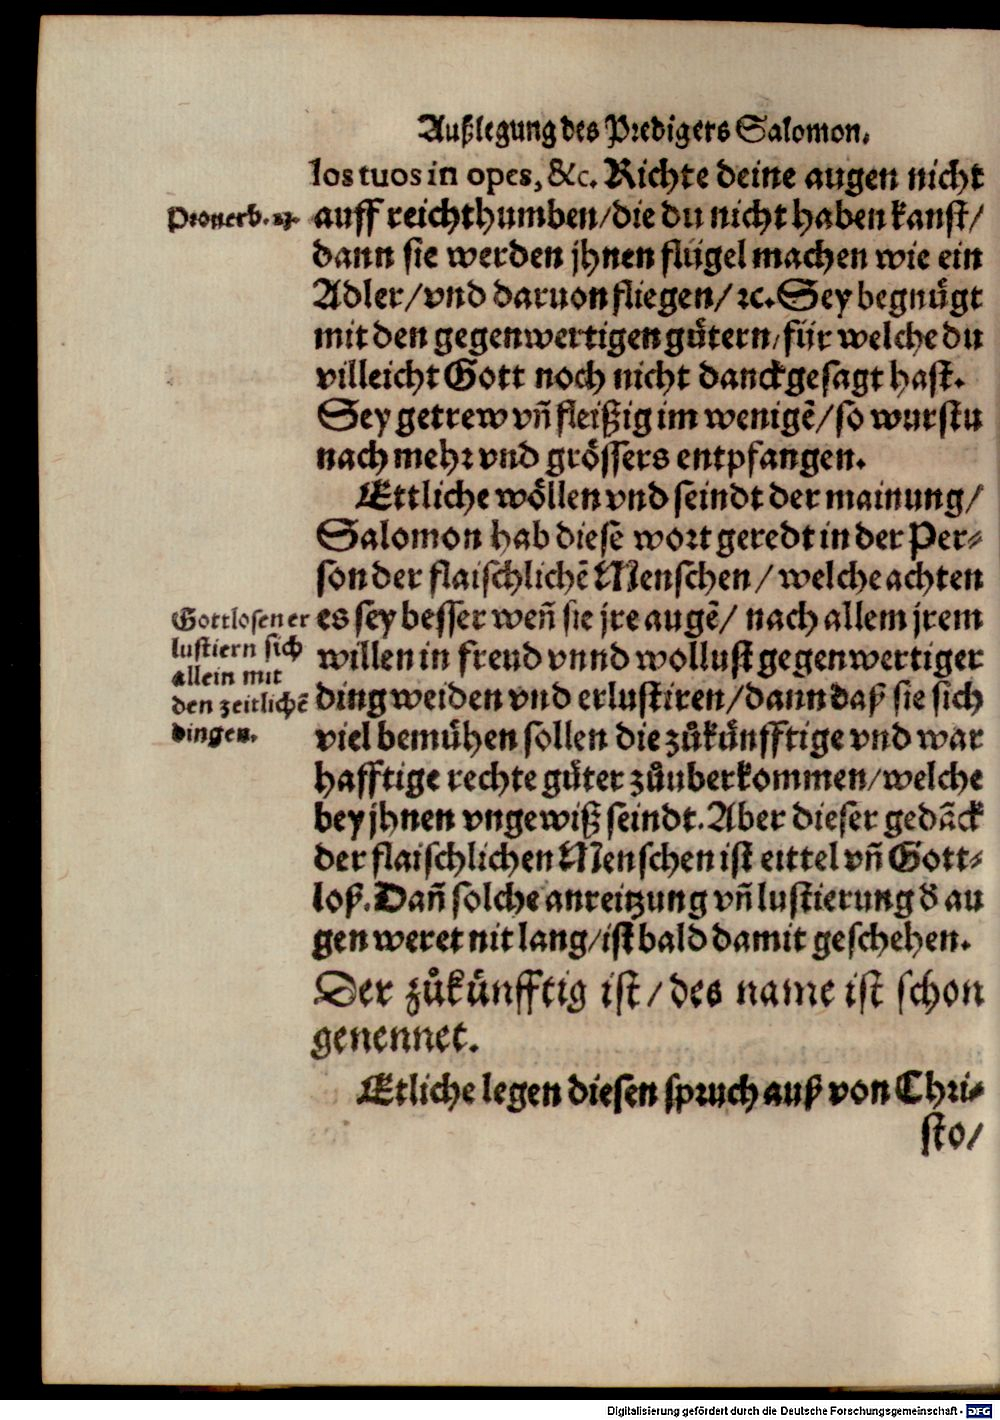 Außlegung des Predigers Salomon.
los tuos in opes, &c. Richte deine augen nicht
Prouerb. 23.
auff reichthumben/die du nicht haben kanst/
dann sie werden jhnen flügel machen wie ein
Adler/vnd daruon fliegen/ ꝛc. Sey begnuͤgt
mit den gegenwertigen guͤtern/für welche du
villeicht Gott noch nicht danckgesagt hast.
Sey getrew vñ fleißig im wenigẽ/so wurstu
nach mehr vnd groͤssers entpfangen.
Ettliche woͤllen vnd seindt der mainung/
Salomon hab diese wort geredt in der Per-
son der flaischlichẽ Menschen/ welche achten
es sey besser weñ sie jre augẽ/ nach allem jrem
willen in freud vnnd wollust gegenwertiger
ding weiden vnd erlustiren/dann daß sie sich
viel bemuͤhen sollen die zůkuͤnfftige vnd war
hafftige rechte guͤter zůuberkommen/welche
bey jhnen vngewiß seindt. Aber dieser gedãck
der flaischlichen Menschen ist eittel vñ Gott-
loß. Dañ solche anreitzung vñ lustierung d̕ au
gen weret nit lang/ist bald damit geschehen.
Gottlosen er
lustiern sich
allein mit
den zeitlichẽ
dingen.
Der zůkuͤnfftig ist/ des name ist schon
genennet.
Etliche legen diesen spruch auß von Chri-
sto/
Digitalisierung gefördert durch die Deutsche Forschungsgemeinschaft - DFG